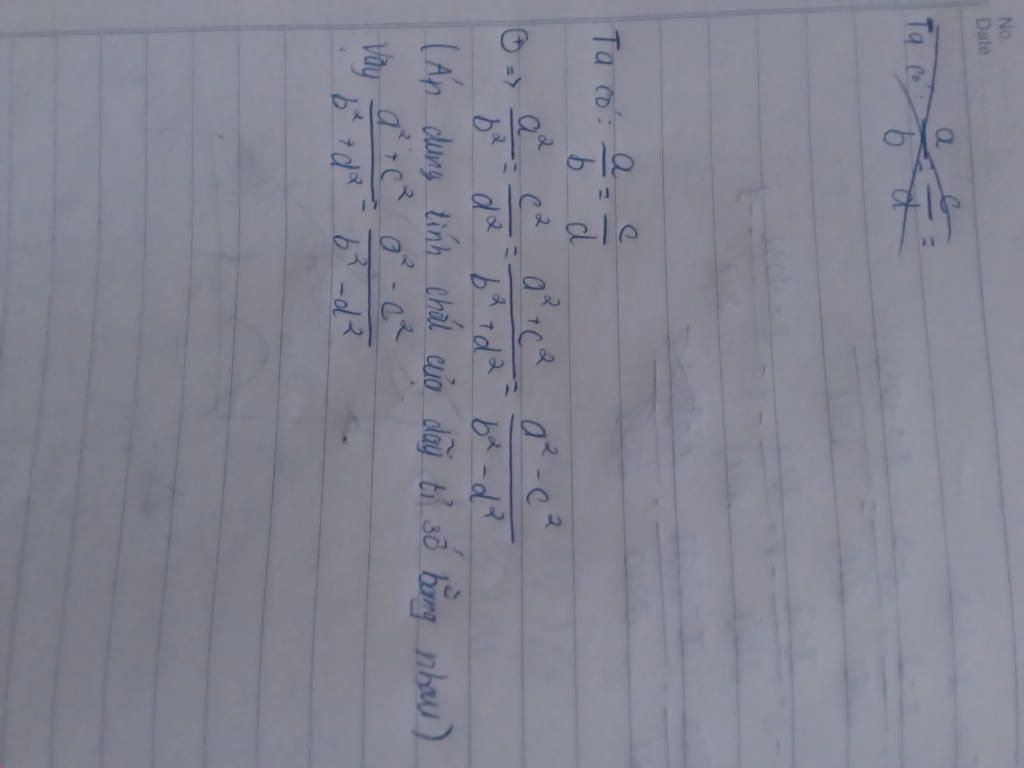 No.
Date
Ta có: a/b = c/d =
Ta có: a/b = c/d
⊕ => a²/b² = c²/d² = (a²+c²)/(b²+d²) = (a²-c²)/(b²-d²)
(Áp dụng tính chất của dãy tỉ số bằng nhau)
Vậy (a²+c²)/(b²+d²) = (a²-c²)/(b²-d²)